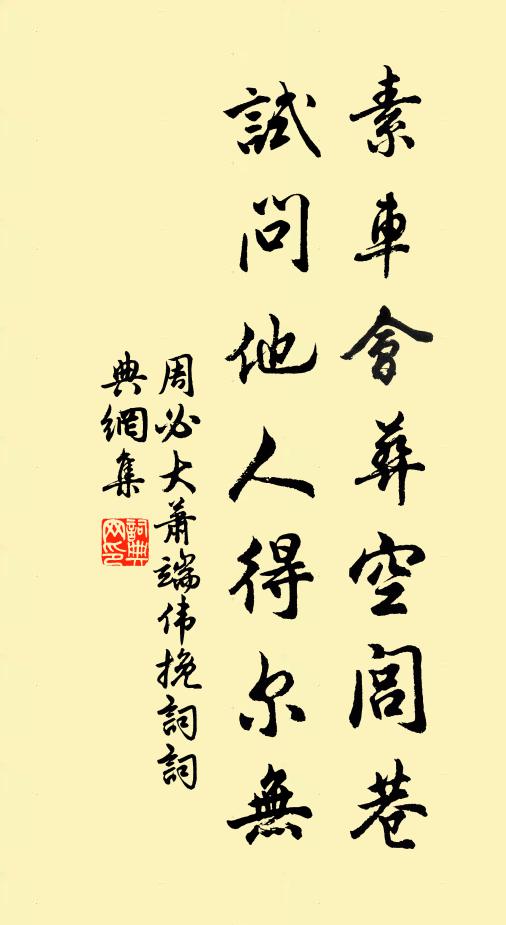 素車會葬空閭巷
試問他人得尔無
周必大萧端伟挽詞詞
典網集
詞典網印